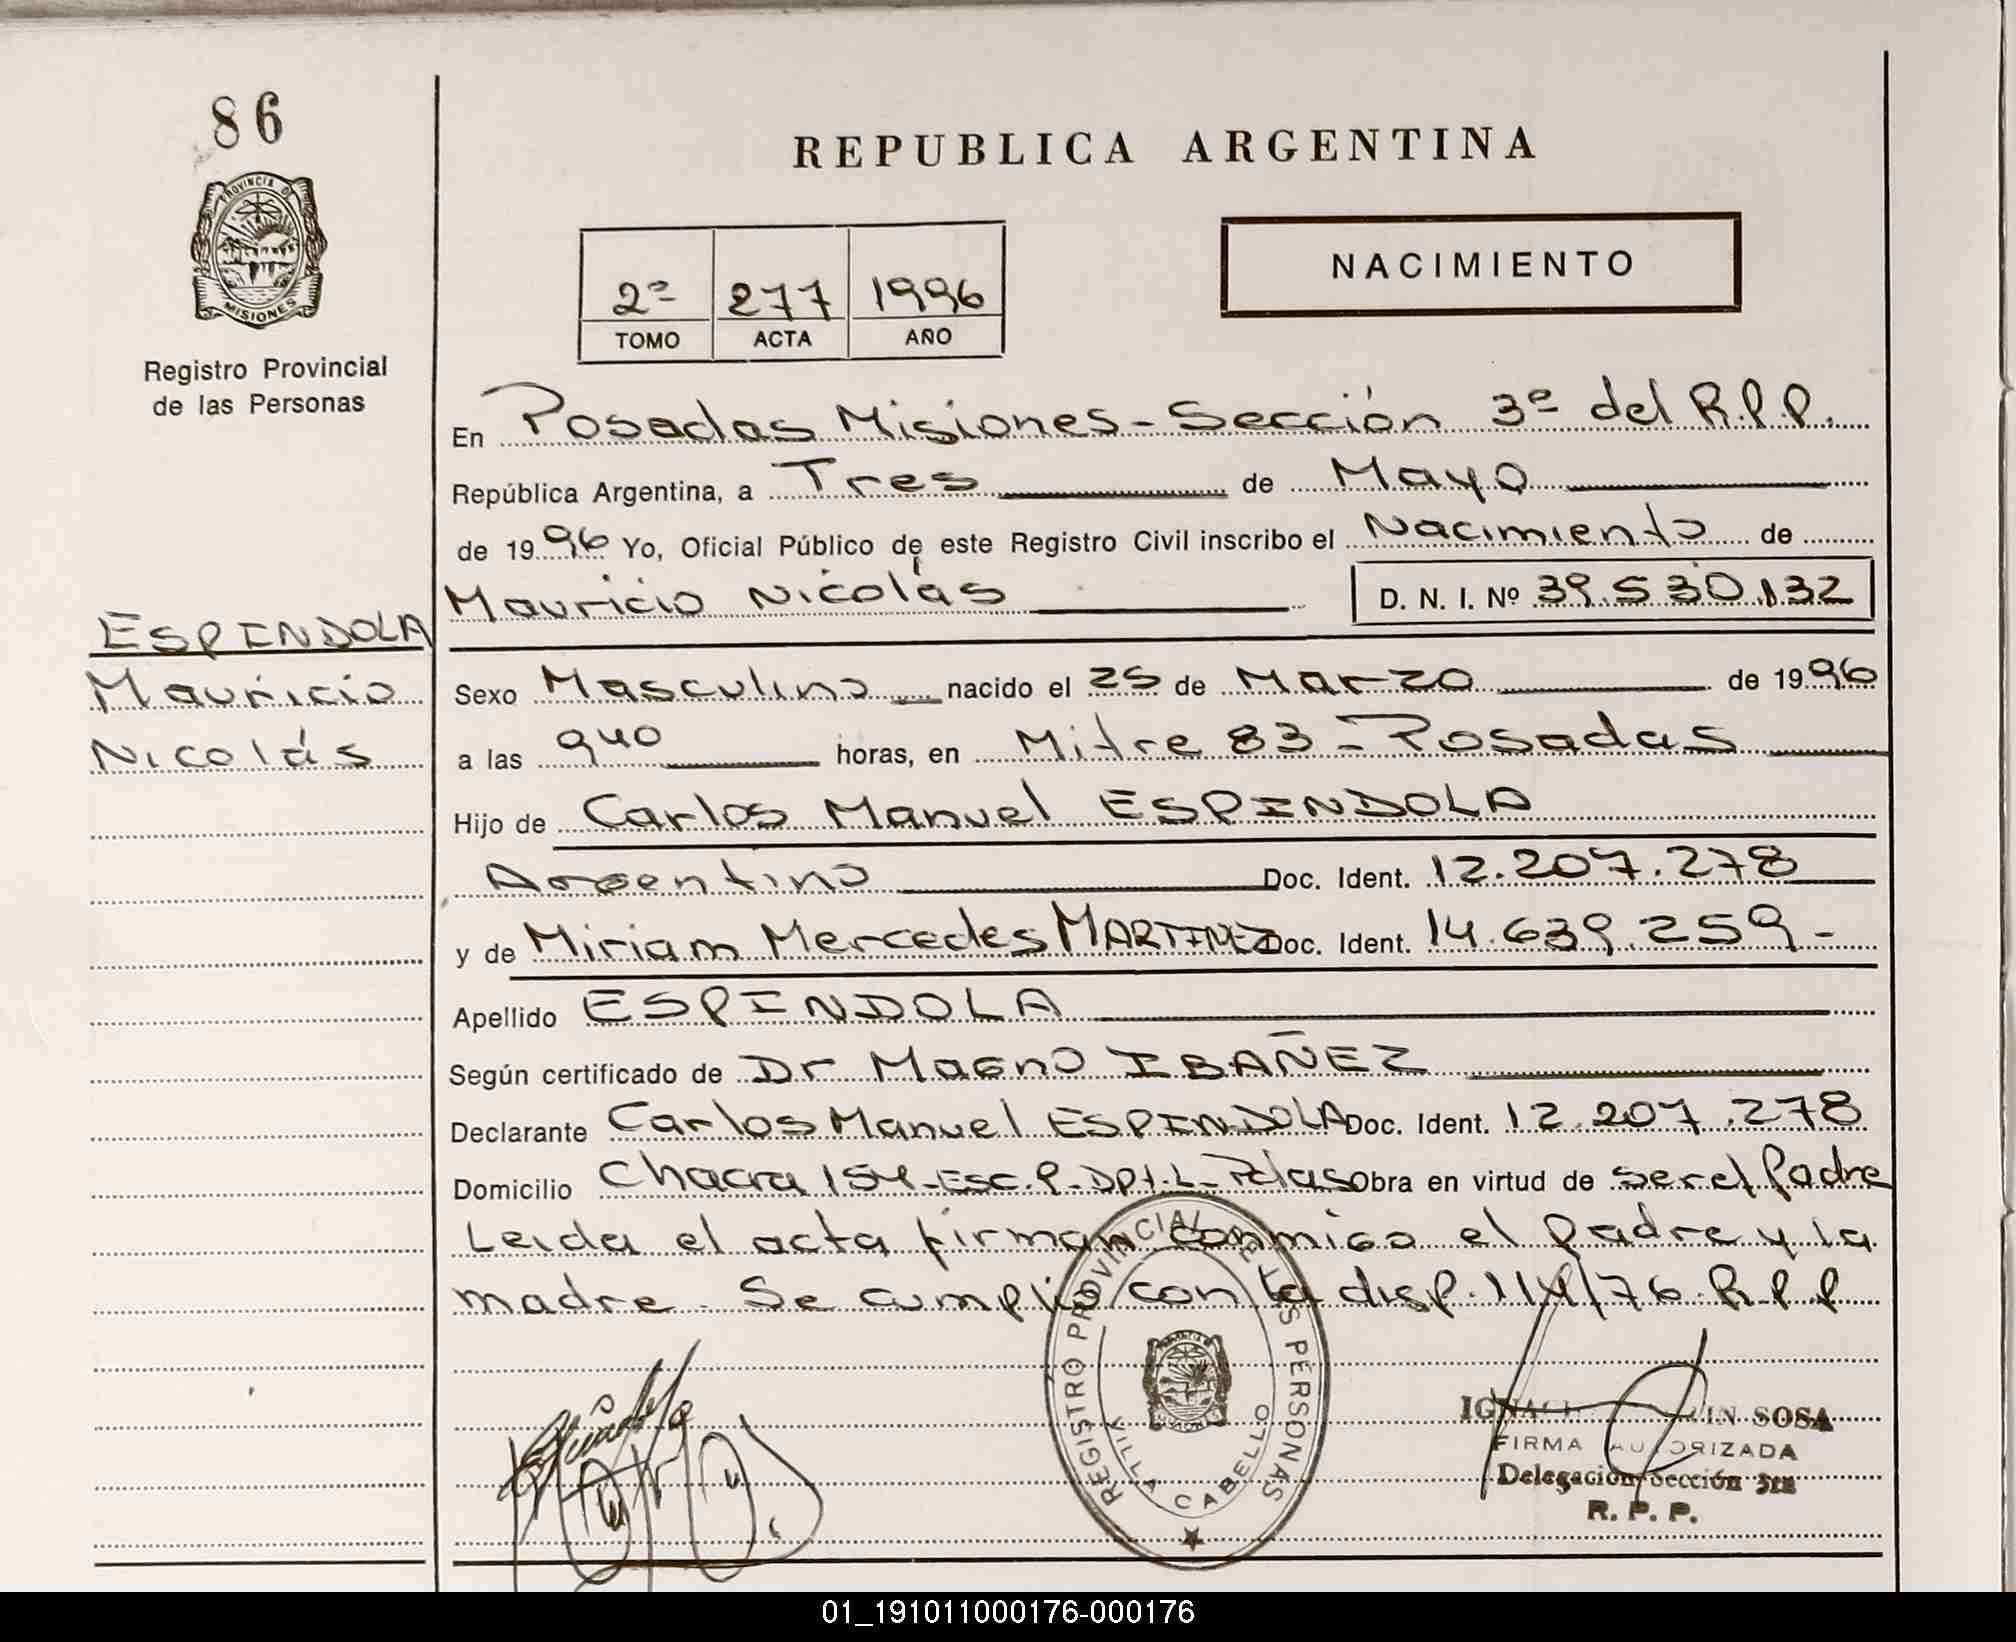 86
REPUBLICA ARGENTINA
PROVINCIA DE MISIONES
NACIMIENTO
2º 277 1996
TOMO ACTA AÑO
Registro Provincial
de las Personas
En Posadas Misiones - Sección 3º del R.P.P.
República Argentina, a Tres de Mayo
de 1996 Yo, Oficial Público de este Registro Civil inscribo el Nacimiento de
Mauricio Nicolás D. N. I. Nº 39.530.132
ESPINDOLA
Mauricio
Nicolás
Sexo Masculino nacido el 25 de Marzo de 1996
a las 940 horas, en Mitre 83 - Posadas
Hijo de Carlos Manuel ESPINDOLA
Argentino Doc. Ident. 12.207.278
y de Miriam Mercedes MARTINEZ Doc. Ident. 14.639.259-
Apellido ESPINDOLA
Según certificado de Dr Magno IBAÑEZ
Declarante Carlos Manuel ESPINDOLA Doc. Ident. 12.207.278
Domicilio Chacra 154-Esc.P-Dpt.L-Pdas Obra en virtud de ser el Padre
Leida el acta firman conmigo el padre y la
madre. Se cumplió con la disp. 114/76 R.P.P
REGISTRO PROVINCIAL DE LAS PERSONAS
VILLA CABELLO
SOSA
FIRMA AUTORIZADA
Delegación Sección 3ra
R. P. P.
01_191011000176-000176